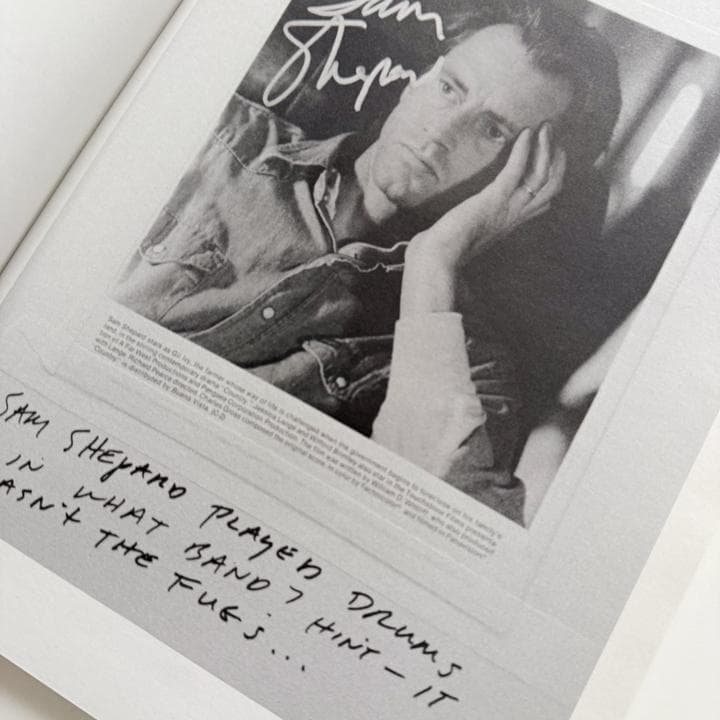 Sam
Shepard
Sam Shepard stars as Gil Ivy, the farmer whose way of life is challenged when the government begins to foreclose on his family's
land, in the stirring contemporary drama "Country." Jessica Lange and Wilford Brimley also star in the Touchstone Films presenta-
tion of A Far West Productions and Pangaea Corporation Production. The film was written by William D. Wittliff, who also produced
with Lange. Richard Pearce directed. Charles Gross composed the original score. In color by Technicolor®, and filmed in Panavision®,
"Country" is distributed by Buena Vista.
SAM SHEPARD PLAYED DRUMS
IN WHAT BAND? HINT – IT
ASN'T THE FUGS...